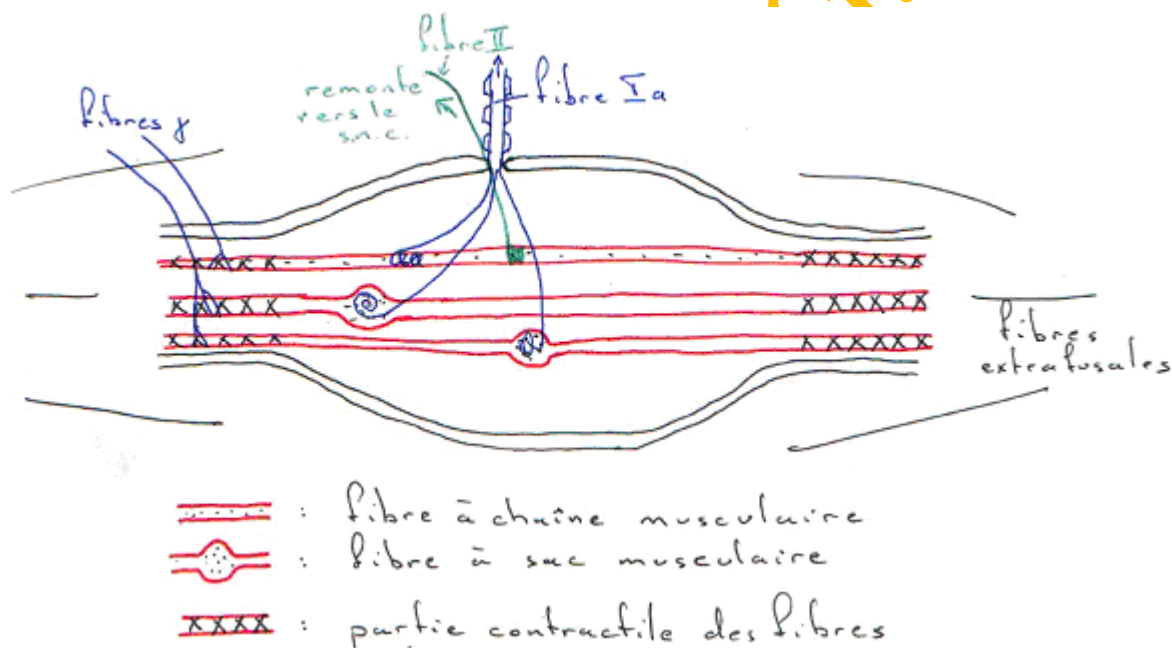 fibre II
remonte
vers le
s.n.c.
fibre Ia
fibres γ
fibres
extrafusales
: fibre à chaîne musculaire
: fibre à sac musculaire
: partie contractile des fibres